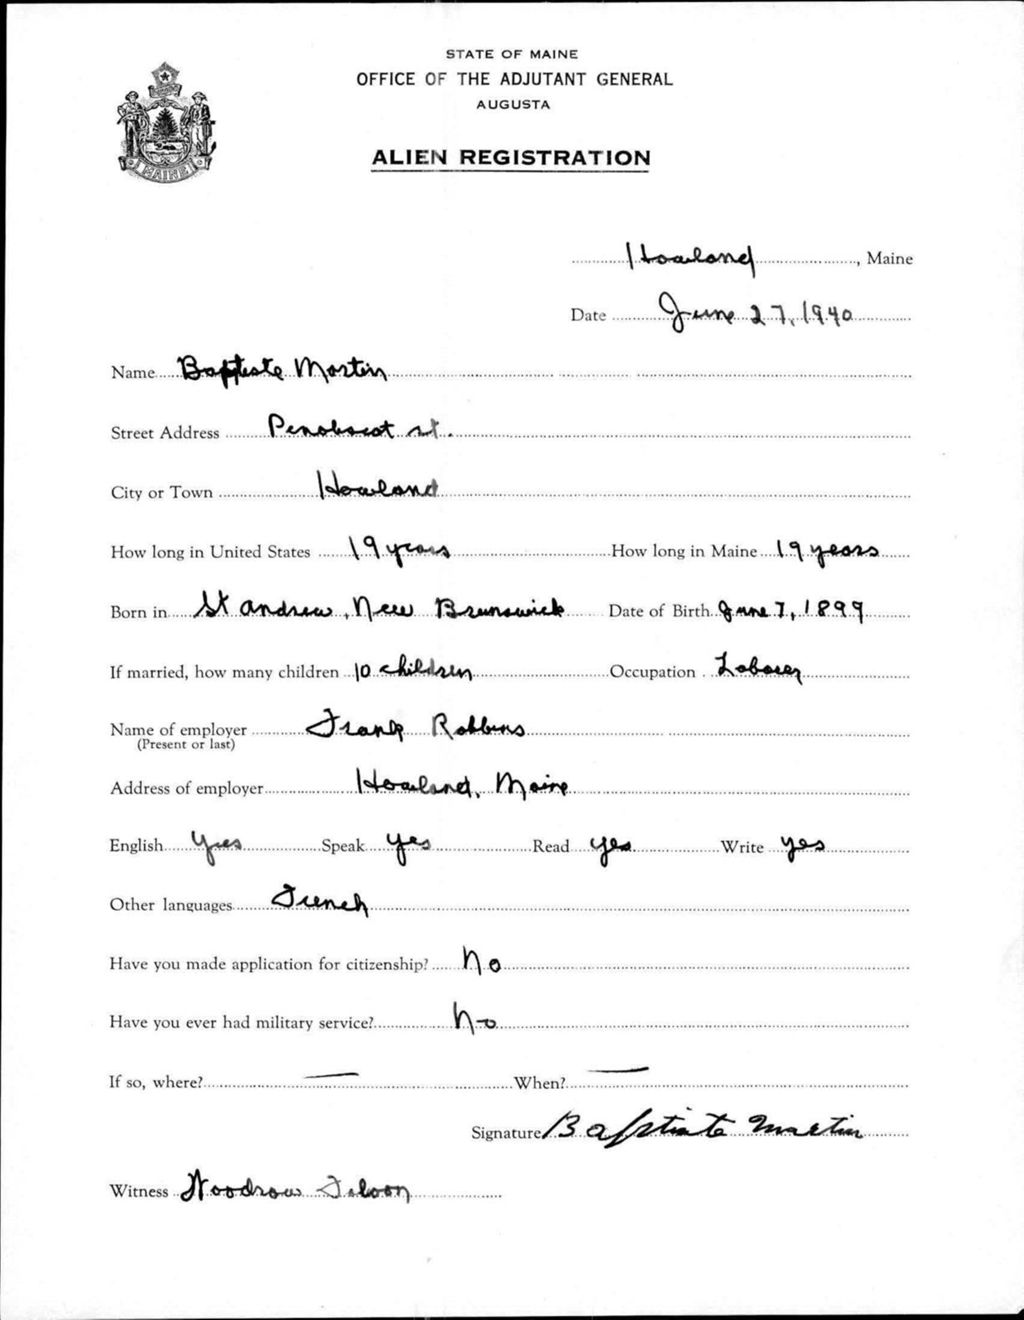 STATE OF MAINE
OFFICE OF THE ADJUTANT GENERAL
AUGUSTA
ALIEN REGISTRATION
MAINE
Howland, Maine
Date June 27, 1940
Name Baptiste Martin
Street Address Penobscot st.
City or Town Howland
How long in United States 19 years How long in Maine 19 years
Born in St Andrew, New Brunswick Date of Birth June 7, 1899
If married, how many children 10 children Occupation Laborer
Name of employer Frank Robbins
(Present or last)
Address of employer Howland, Maine
English Yes Speak yes Read yes Write yes
Other languages French
Have you made application for citizenship? No
Have you ever had military service? No
If so, where? — When? —
Signature Baptiste Martin
Witness Woodrow